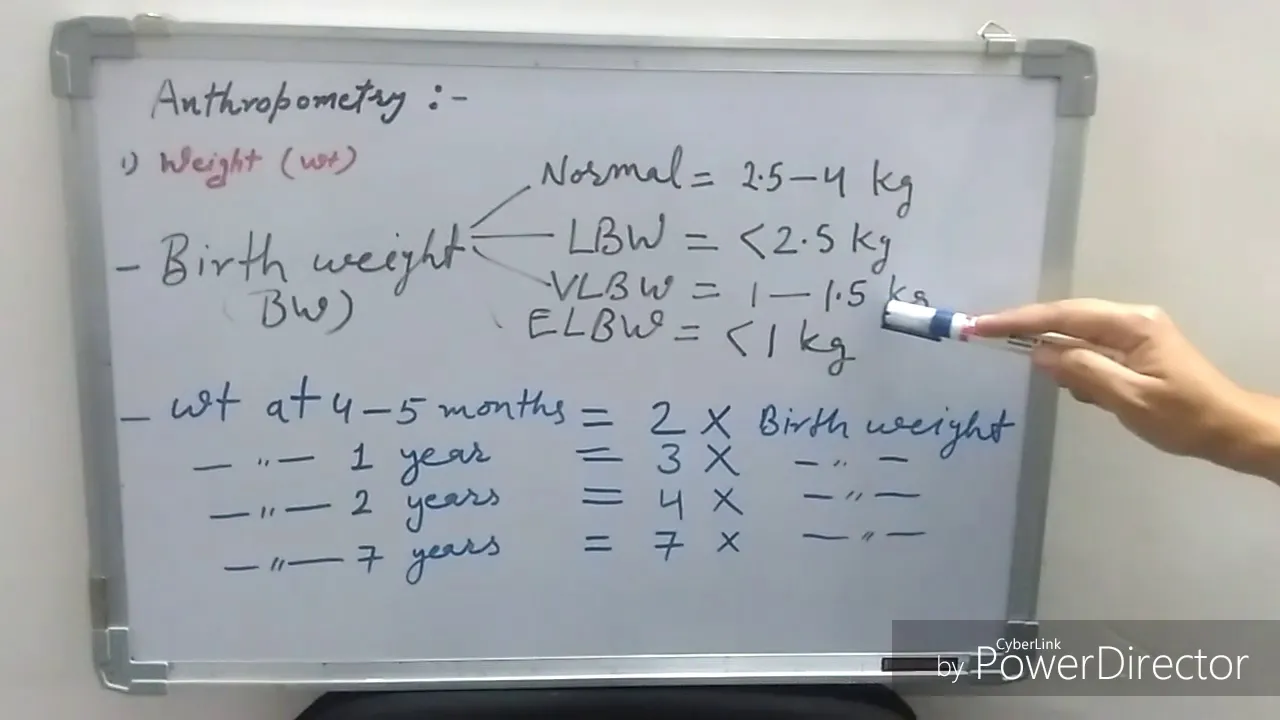 Anthropometry :-
1) Weight (wt)
Normal = 2.5-4 kg
- Birth weight LBW = <2.5 kg
(BW) VLBW = 1-1.5 kg
ELBW = <1 kg
- Wt at 4-5 months = 2 X Birth weight
- " - 1 year = 3 X - " -
- " - 2 years = 4 X - " -
- " - 7 years = 7 X - " -
CyberLink
by PowerDirector